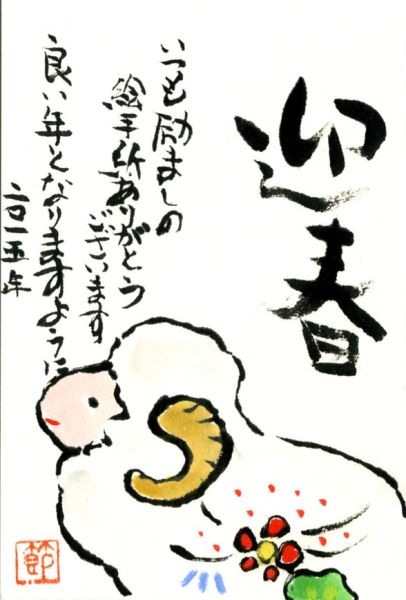 迎春
いつも励ましの
絵手紙ありがとう
ございます
良い年となりますように
二〇一五年
節